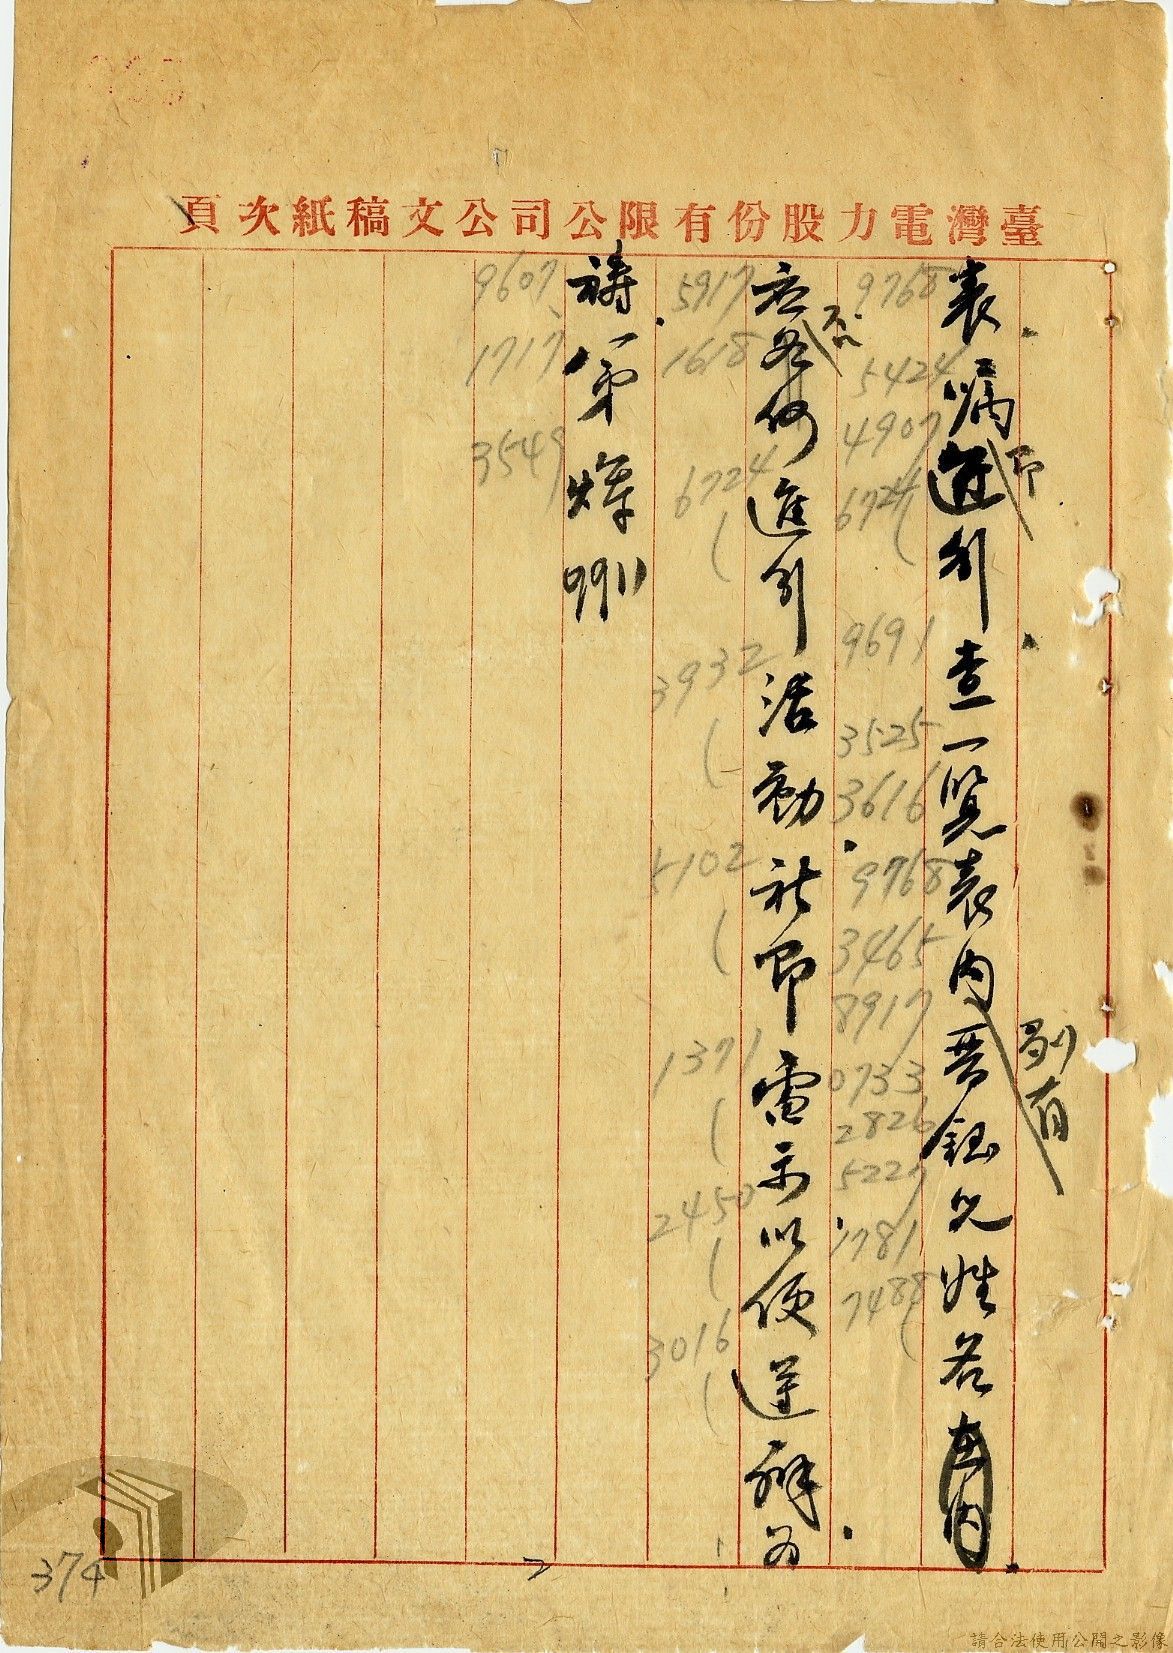 臺灣電力股份有限公司公文稿紙次頁
表囑進行查一覽表內晋鈺兄姓名在內
即
列有
應如何進行活動祈即電示以便遵辦為
否
禱 弟煇叩
9768
5424
4907
6724
9691
3525
3616
9768
3465
8917
0733
2826
5227
1781
7488
5917
1618
6724
3932
5102
1371
2450
3016
9607
1717
3549
374
請合法使用公開之影像